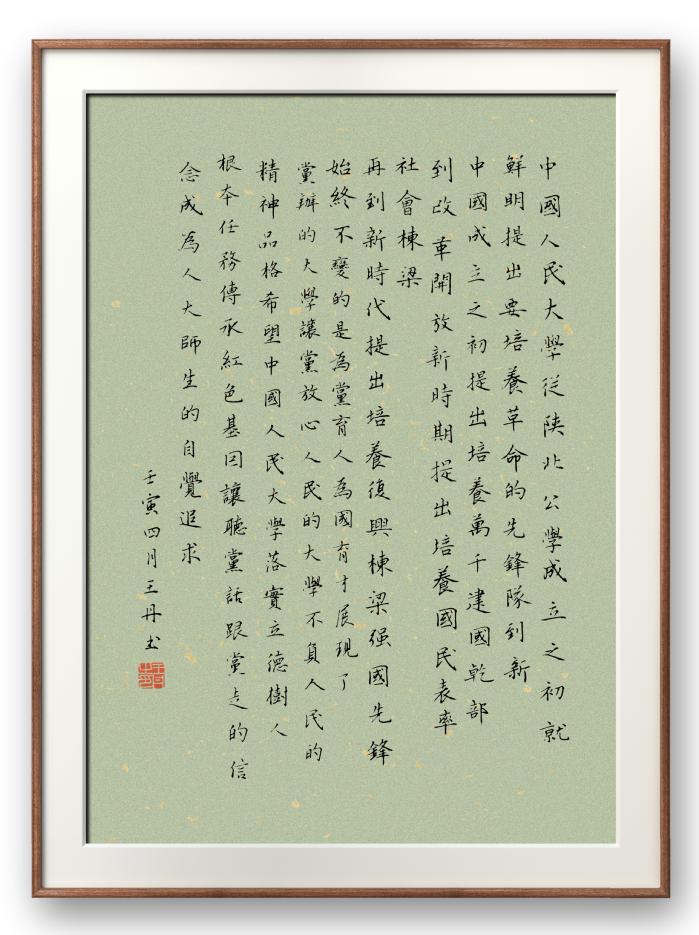 中國人民大學從陝北公學成立之初就
鮮明提出要培養革命的先鋒隊到新
中國成立之初提出培養萬千建國乾部
到改革開放新時期提出培養國民表率
社會棟梁
再到新時代提出培養復興棟梁强國先鋒
始終不變的是為黨育人為國育才展現了
黨辦的大學讓黨放心人民的大學不負人民的
精神品格希望中國人民大學落實立德樹人
根本任務傳承紅色基因讓聽黨話跟黨走的信
念成為人大師生的自覺追求
壬寅四月王丹书